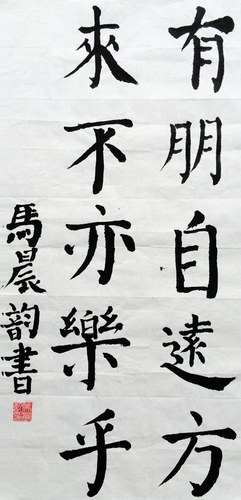 有朋自遠方
來不亦樂乎
馬晨韵書